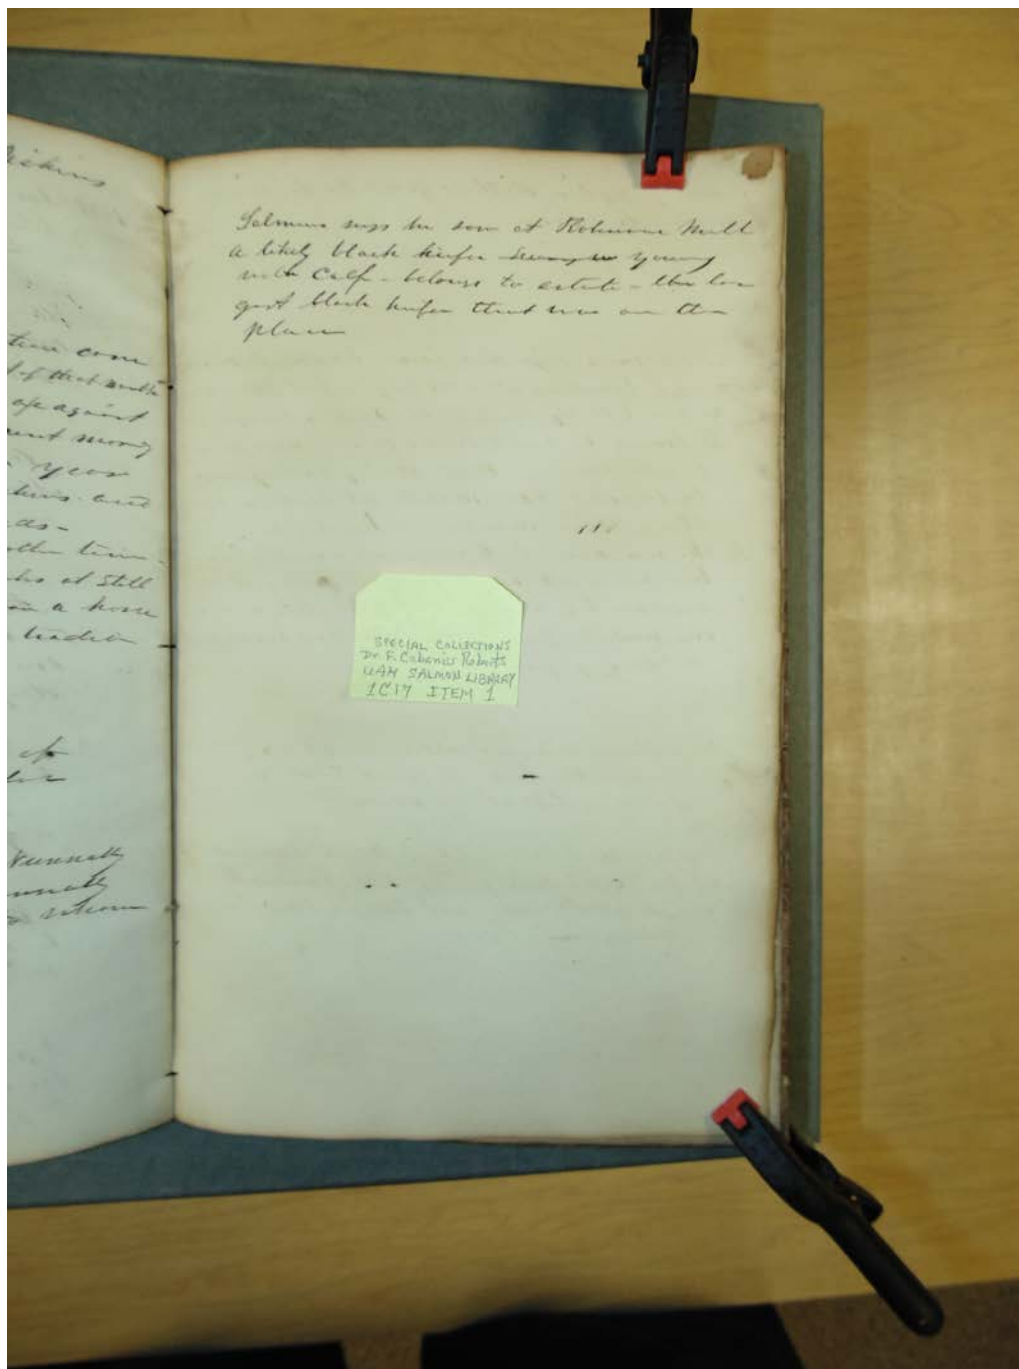 ickins
tion com
of that month
ofe against
ent money
year
kins and
as -
other time
at Still
a horse
tradition
of
Nunnally
nnally
whom
Solomon says he saw at Robinsons Mill
a likely black heifer young
with Calf - belongs to estate - the lar
gest black heifer that was on the
place
SPECIAL COLLECTIONS
Dr. F. Cabaniss Roberts
UAH SALMON LIBRARY
1C17 ITEM 1